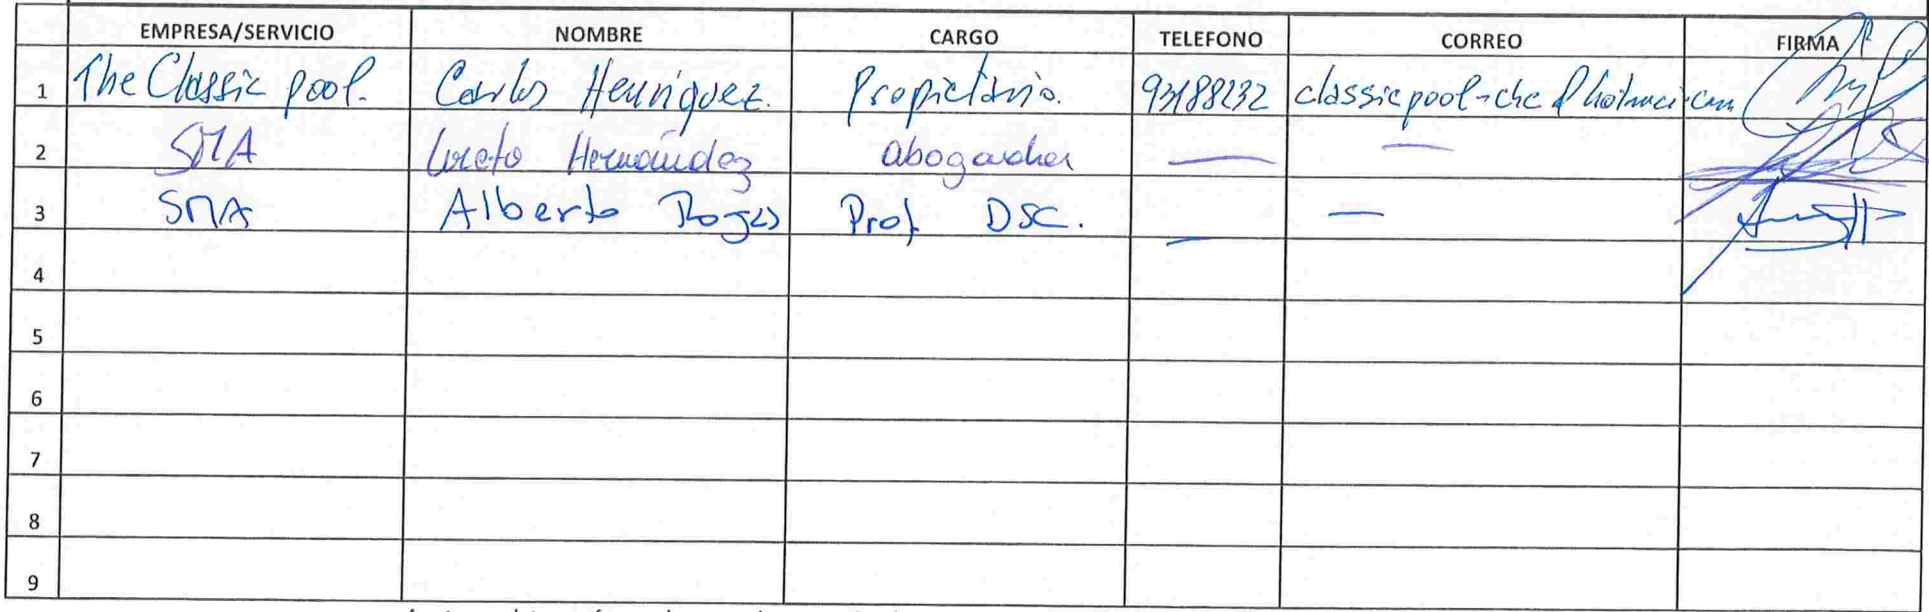 EMPRESA/SERVICIO NOMBRE CARGO TELEFONO CORREO FIRMA
1 The Classic pool. Carlos Henríquez. Propietario. 93188232
2 SMA Loreto Hernández abogada
3 SMA Alberto Rojas Prof DSC.
4
5
6
7
8
9